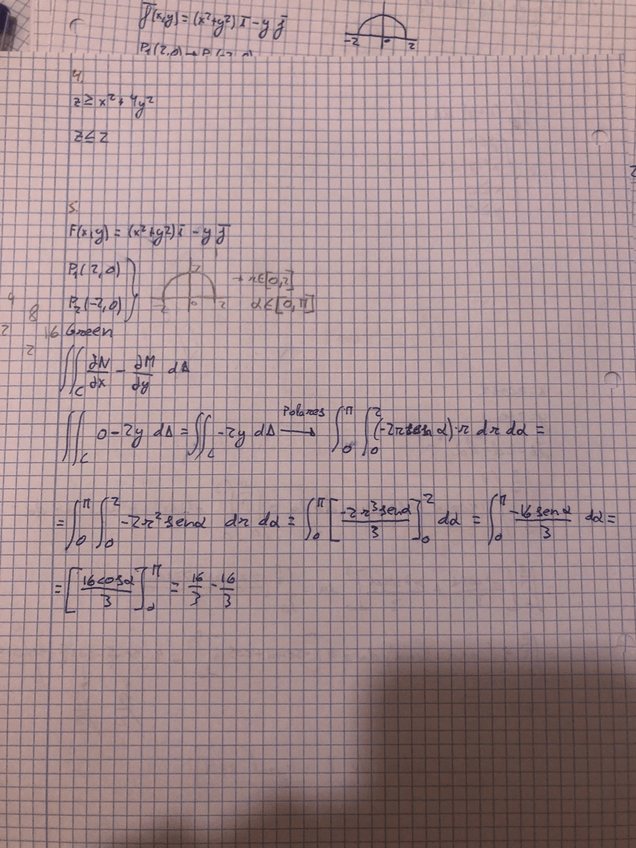 F(x,y) = (x²+y²) i - y j
-2 0 2
P₁(2,0) → P₂(-2,0)
4.
z ≥ x² + 4y²
z ≤ 2
5.
F(x,y) = (x²+y²) i - y j
P₁(2,0)
P₂(-2,0)
2
-2 0 2
→ r∈[0,2]
α∈[0,π]
4
8
2
16
2
Green
∬_C ∂N/∂x - ∂M/∂y dA
∬_C 0 - 2y dA = ∬_C -2y dA —Polares→ ∫₀^π ∫₀² (-2r sen α)·r dr dα =
= ∫₀^π ∫₀² -2r² sen α dr dα = ∫₀^π [-2r³ sen α / 3]₀² dα = ∫₀^π -16 sen α / 3 dα =
= [16 cos α / 3]₀^π = 16/3 - 16/3